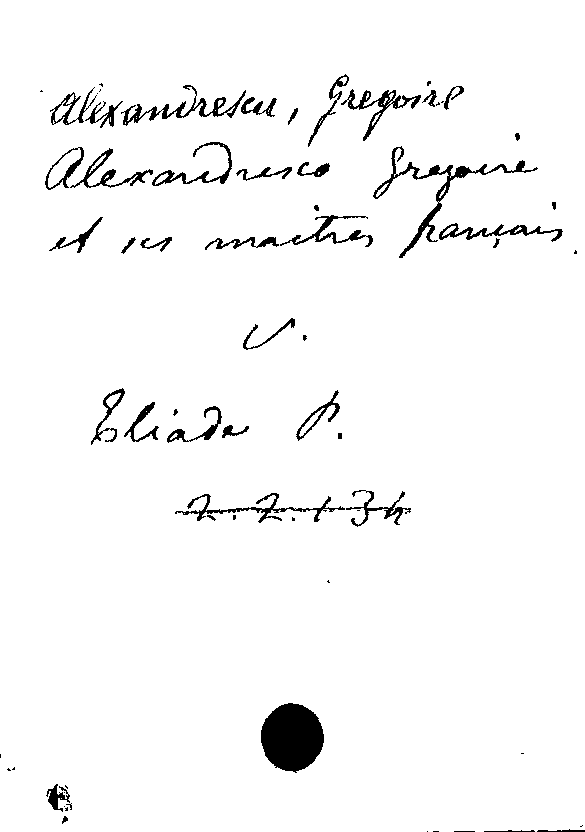 Alexandrescu, Gregoire
Alexandresco Gregoire
et ses maitres français
V.
Eliade P.
2.2.134